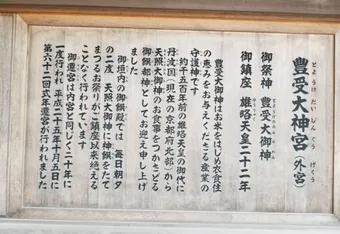 とようけだいじんぐう げくう
豊受大神宮(外宮)
御祭神 豊受大御神
御鎮座 雄略天皇二十二年
豊受大御神はお米をはじめ衣食住
の恵みをお与えくださる産業の
守護神です
約千五百年前の雄略天皇の御代に
丹波国(現在の京都府北部)から
天照大御神のお食事をつかさどる
御饌都神としてお迎え申し上げ
ました
御垣内の御饌殿では 毎日朝夕
の二度 天照大御神に神饌をたて
まつるお祭りがご鎮座以来絶える
ことなく行われています
御遷宮は内宮と同じく二十年に
一度行われ 平成二十五年十月五日に
第六十二回式年遷宮が行われました